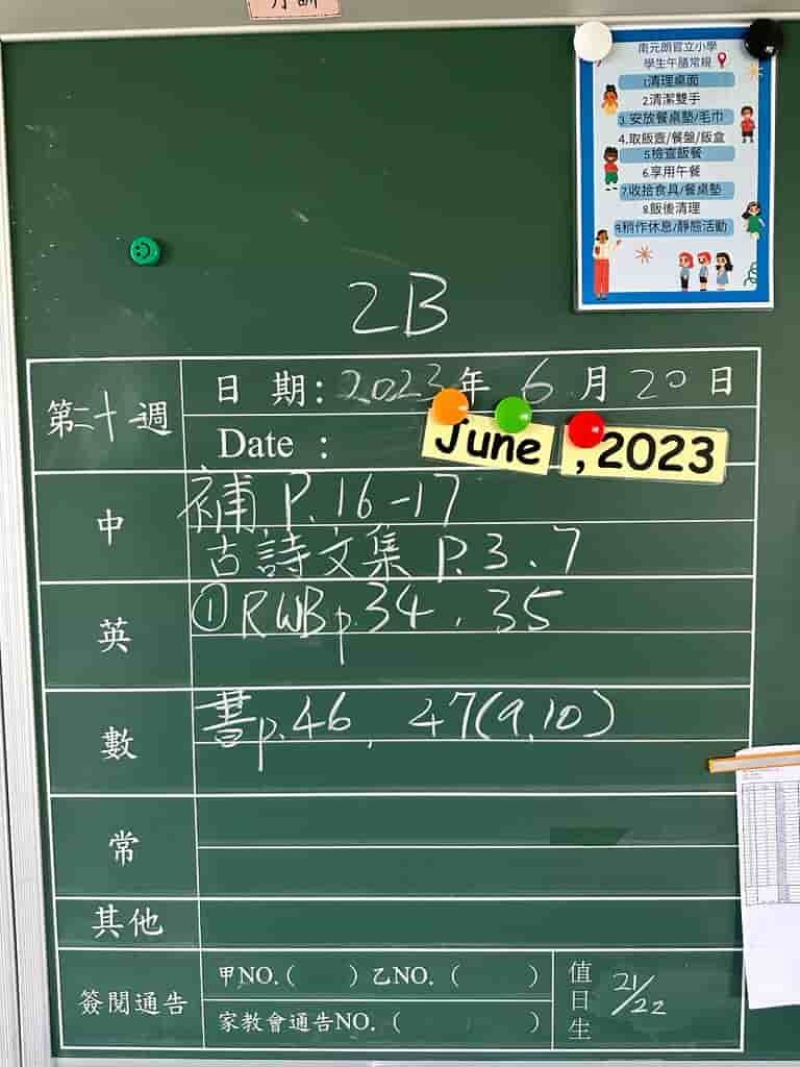 南元朗官立小學
學生午膳常規
1.清理桌面
2.清潔雙手
3.安放餐桌墊/毛巾
4.取飯壼/餐盤/飯盒
5.檢查飯餐
6.享用午餐
7.收拾食具/餐桌墊
8.飯後清理
9.稍作休息/靜態活動
2B
第二十週
日 期: 2023年 6 月 20 日
Date :
June , 2023
中
補 P.16-17
古詩文集 P.3、7
英
① RWB p.34 , 35
數
書p.46, 47(9,10)
常
其他
簽閱通告
甲NO.( ) 乙NO.( )
家教會通告NO.( )
值日生
21/22